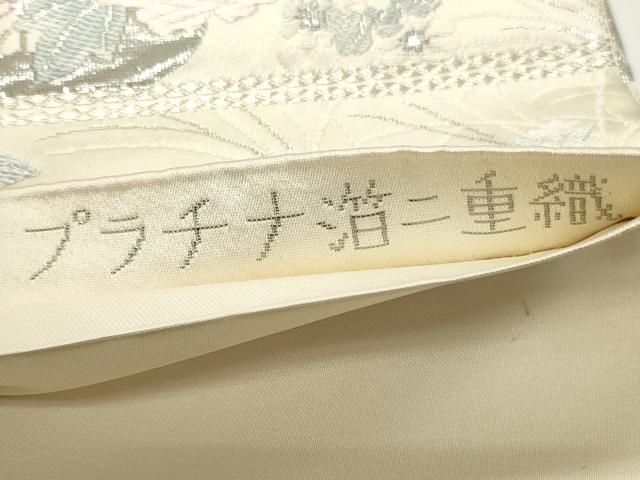 プラチナ箔二重織